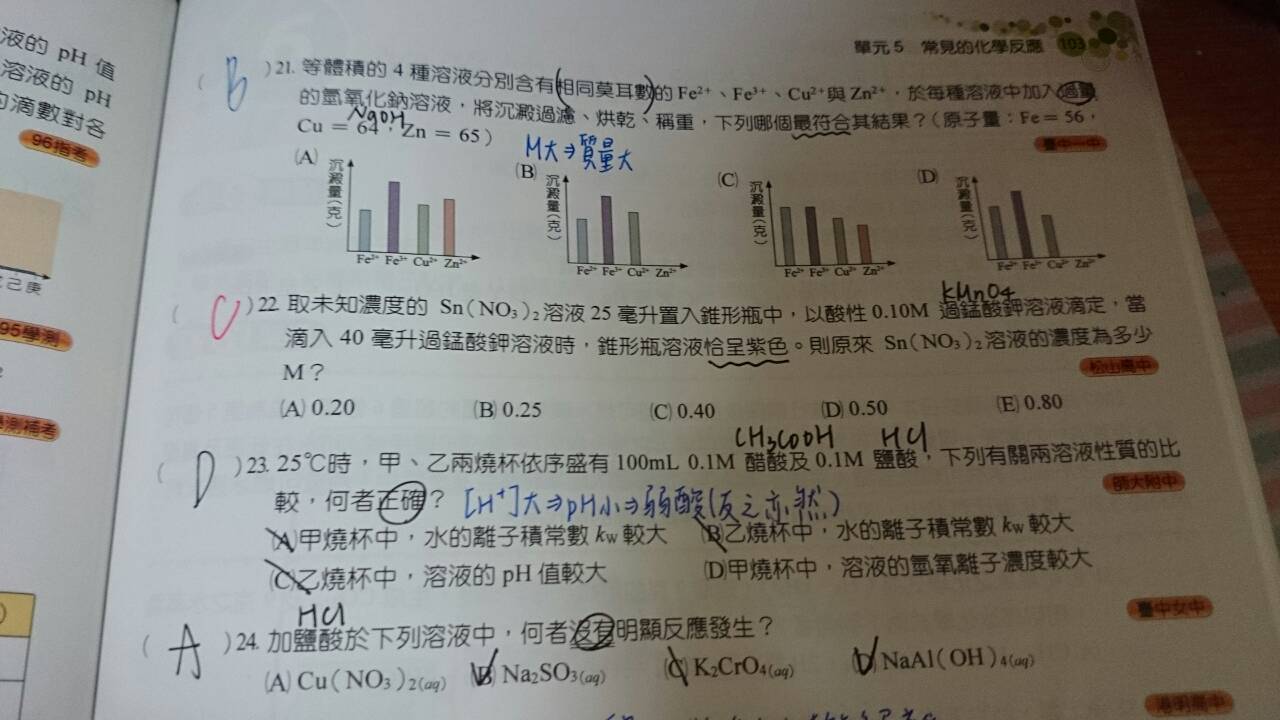 單元5 常見的化學反應 103
液的 pH 值
溶液的 pH
的滴數對各
96指考
己庚
95學測
學測補考
( B )21. 等體積的4種溶液分別含有(相同莫耳數)的Fe²⁺、Fe³⁺、Cu²⁺與Zn²⁺,於每種溶液中加入過量
的氫氧化鈉溶液,將沉澱過濾、烘乾、稱重,下列哪個最符合其結果?(原子量:Fe=56,
NaOH
Cu = 64,Zn = 65)
臺中一中
M大⇒質量大
(A) 沉澱量(克) Fe²⁺ Fe³⁺ Cu²⁺ Zn²⁺
(B) 沉澱量(克) Fe²⁺ Fe³⁺ Cu²⁺ Zn²⁺
(C) 沉澱量(克) Fe²⁺ Fe³⁺ Cu²⁺ Zn²⁺
(D) 沉澱量(克) Fe²⁺ Fe³⁺ Cu²⁺ Zn²⁺
KMnO4
( C )22. 取未知濃度的 Sn(NO₃)₂溶液25毫升置入錐形瓶中,以酸性0.10M 過錳酸鉀溶液滴定,當
滴入 40 毫升過錳酸鉀溶液時,錐形瓶溶液恰呈紫色。則原來 Sn(NO₃)₂溶液的濃度為多少
M?
松山高中
(A) 0.20 (B) 0.25 (C) 0.40 (D) 0.50 (E) 0.80
CH₃COOH HCl
( D )23. 25℃時,甲、乙兩燒杯依序盛有100mL 0.1M 醋酸及0.1M 鹽酸,下列有關兩溶液性質的比
較,何者正確? [H⁺]大⇒pH小⇒弱酸(反之亦然)
師大附中
(A)甲燒杯中,水的離子積常數 kw 較大 (B)乙燒杯中,水的離子積常數 kw 較大
(C)乙燒杯中,溶液的 pH 值較大 (D)甲燒杯中,溶液的氫氧離子濃度較大
HCl
臺中女中
( A )24. 加鹽酸於下列溶液中,何者沒有明顯反應發生?
(A) Cu(NO₃)₂(aq) (B) Na₂SO₃(aq) (C) K₂CrO₄(aq) (D) NaAl(OH)₄(aq)